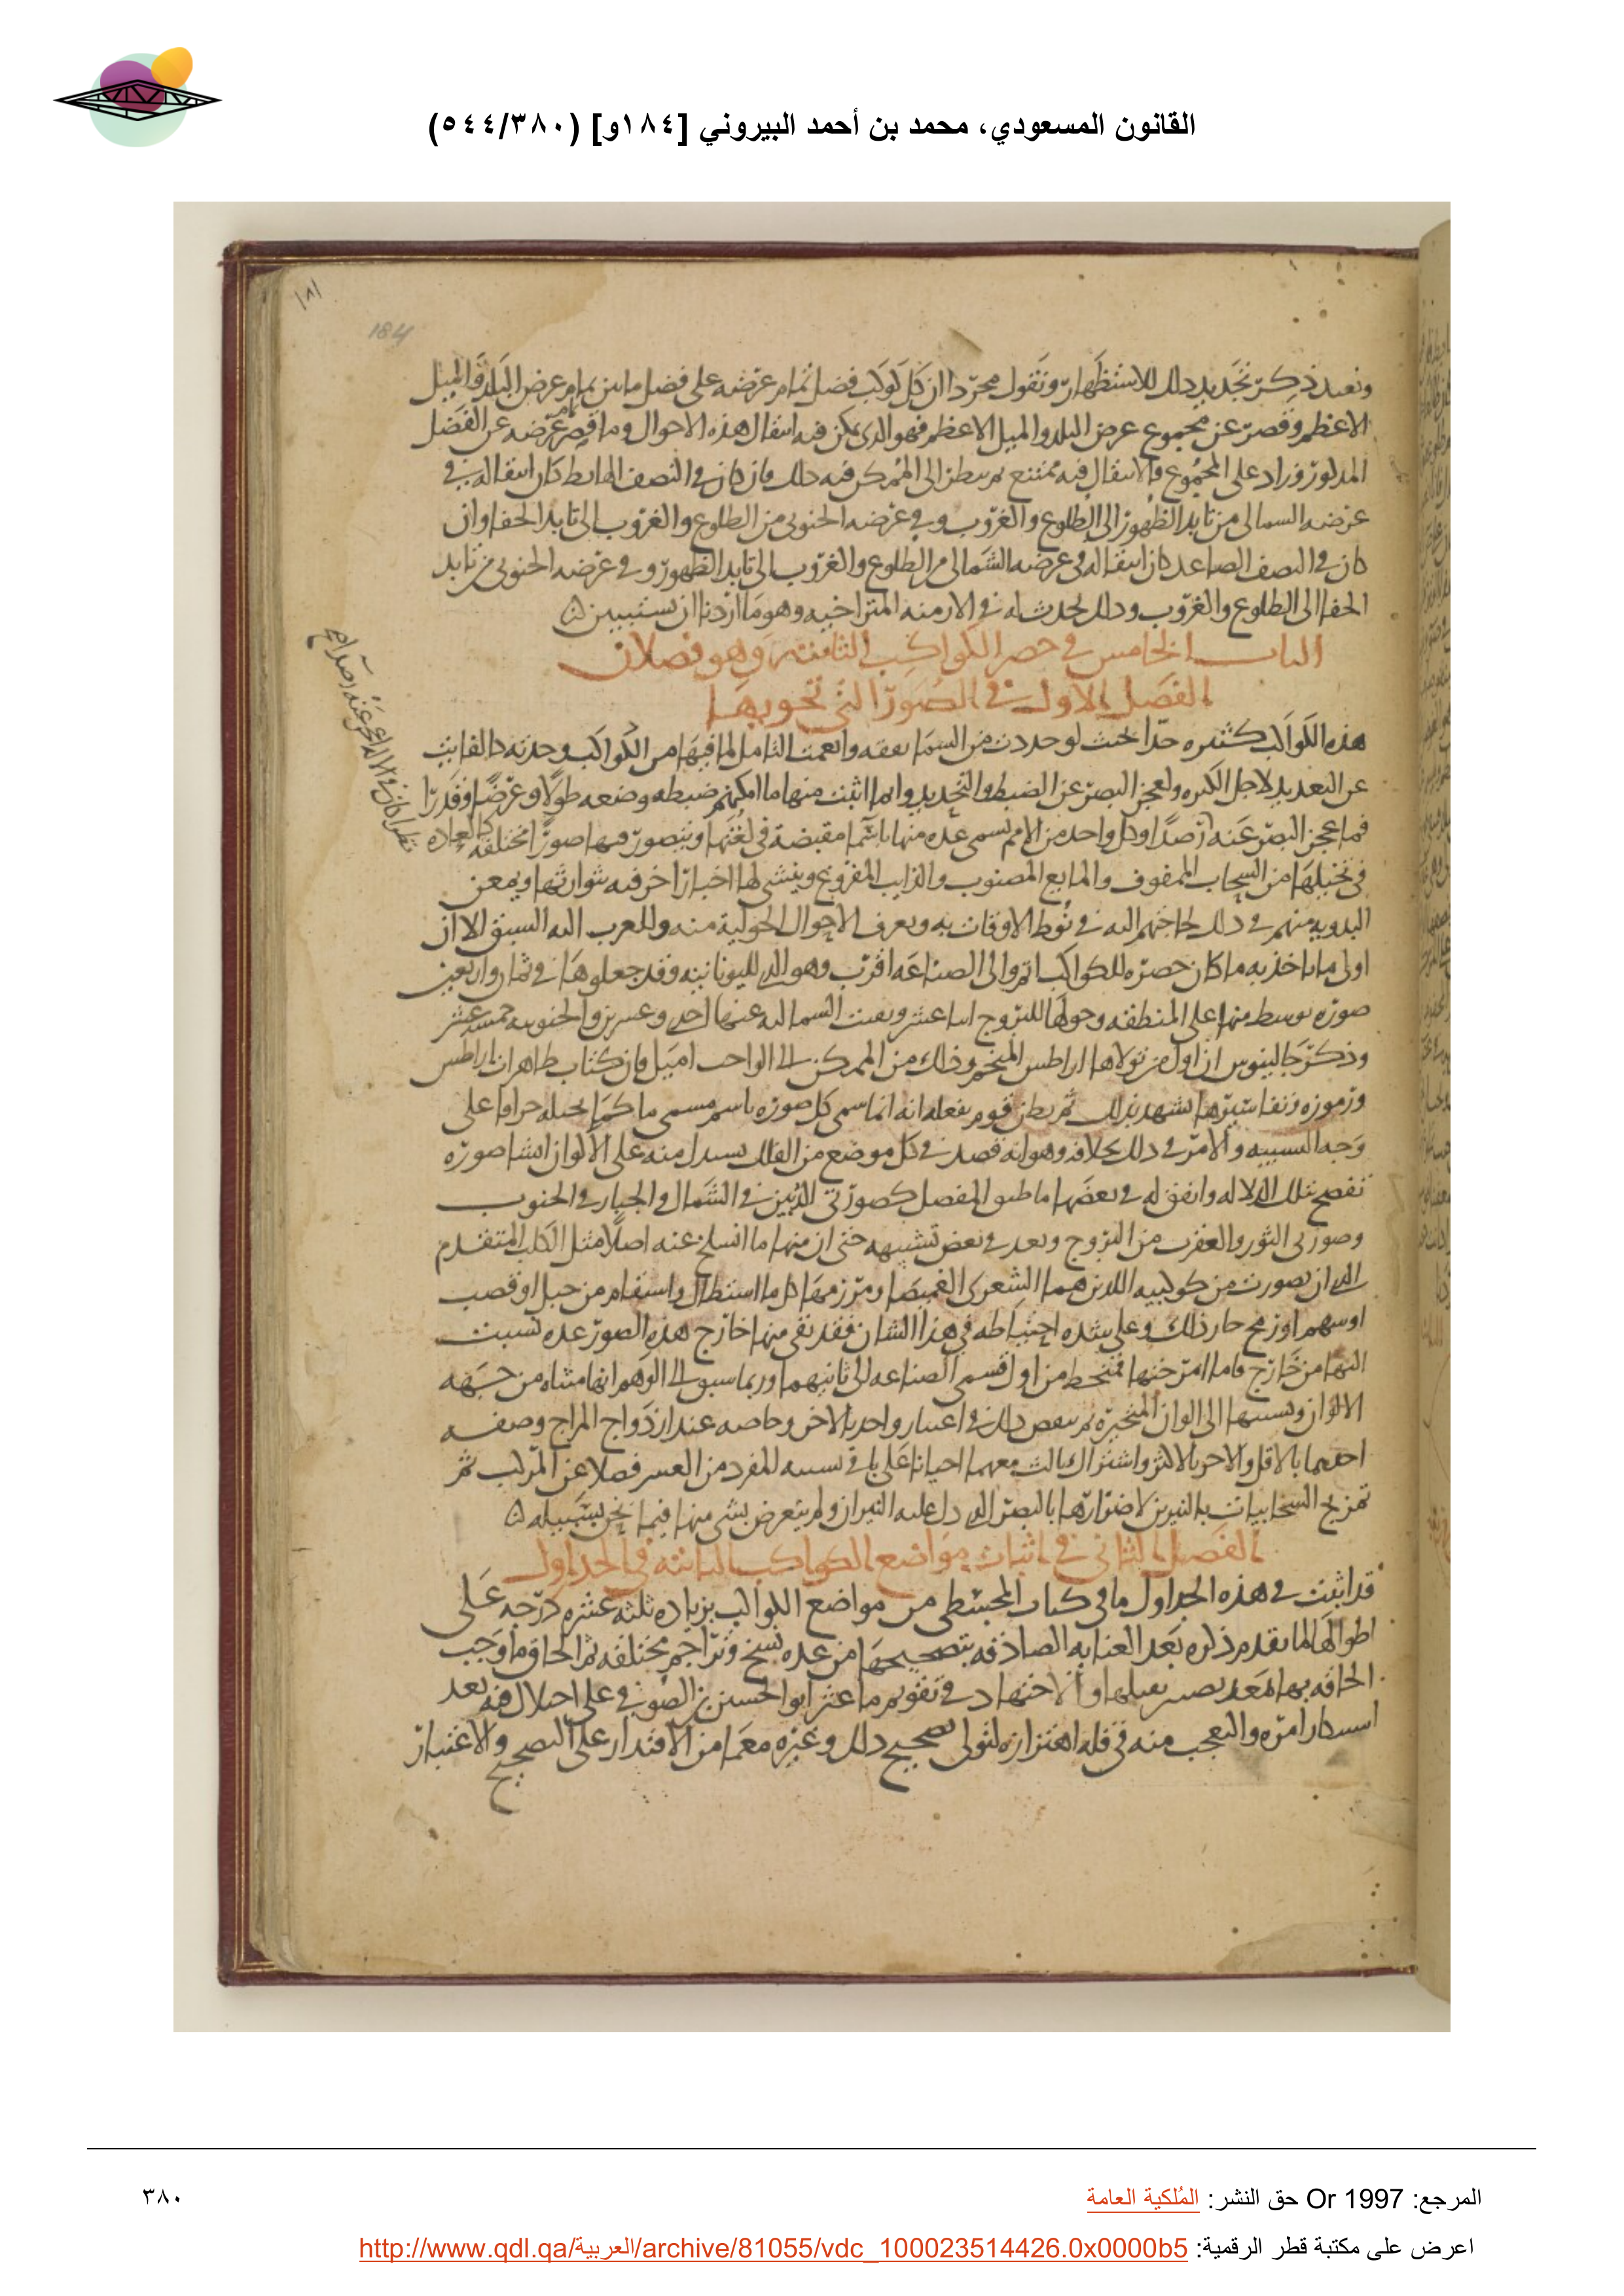 القانون المسعودي، محمد بن أحمد البيروني [١٨٤و] (٥٤٤/٣٨٠)
١٨١
184
ونعيد ذكر تجديد ذلك للاستظهار ونقول مجردا ان كل كوكب فضل تمام عرضه على فضل ما بين تمام عرض البلد والميل
الاعظم وقصر عن مجموع عرض البلد والميل الاعظم فهو الذى يمكن فيه انتقال هذه الاحوال وما قصر تمام عرضه عن الفضل
المذكور وزاد على المجموع فالانتقال فيه ممتنع ثم ينظر الى الممكن فيه ذلك فان كان فى النصف الهابط كان انتقاله فى
عرضه الشمالى من تابد الظهور الى الطلوع والغروب وفى عرضه الجنوبى من الطلوع والغروب الى تابد الخفا وان
كان فى النصف الصاعد كان انتقاله فى عرضه الشمالى من الطلوع والغروب الى تابد الظهور وفى عرضه الجنوبى من تابد
الخفا الى الطلوع والغروب وذلك يحدث له فى الازمنة المتراخية وهو ما اردنا ان نستبين
الباب الخامس فى حصر الكواكب الثابتة وهو فصلان
الفصل الاول فى الصور التى تحويها
هذه الكواكب كثيره جدا بحيث لو حددت من السما بقعه وانعمت التامل لما فيها من الكواكب وجدته كالفايت
عن التعديد لاجل الكثره ولعجز البصر عن الضبط والتحديد وانما اثبت منها ما امكنهم ضبطه وضعه طولا وعرضا وقدرا
فما عجز البصر عنه رصدا وكل واحد من الامم تسمى عده منها باسما مقتضبة فى لغتها ويتصور فيها صورا مختلفه كالعاده
فى تخيلها من السحاب الملفوف والمايع المصبوب والذايب المفروغ وينشى لها اخبارا خرفيه يتوارثها ويمعن
البدويه منهم فى ذلك لحاجتهم اليه فى نوط الاوقات به وتعرف الاحوال الحولية منه وللعرب اليه السبق الا ان
اولى ما ياخذ به ما كان حصره للكواكب اتم والى الصناعه اقرب وهو الذى لليونانيه وقد جعلوها فى ثمان واربعين
صوره توسط منها على المنطقه وحولها للبروج اثنا عشر وبقيت الشماليه عنها احدى وعشرين والجنوبيه خمسه عشر
وذكر جالينوس ان اول من تولاها اراطس المنجم وذلك من الممكن الى الواجب اميل فان كتاب ظاهرات اراطس
ورموزه وتفاسيرها يشهد بذلك ثم يظن قوم بفعله انه انما سمى كل صوره باسم مسمى ما كما تخيله جزافا على
وجه التشبيه والامر فى ذلك بخلافه وهو انه قصد فى كل موضع من الفلك يستدل منه على الالوان انشا صوره
تفصح بتلك الدلاله واتفق له فى بعضها ما طبق المفصل كصورتى الدبين فى الشمال والجبار فى الجنوب
وصورتى الثور والعقرب من البروج وبعد فى بعض تشبيهه حتى ان منها ما انسلخ عنه اصلا مثل الكلب المتقدم
الذى ان تصورت من كوكبيه اللذين هما الشعرى الغميصا ومرزمها كل ما استطال واستقام من حبل او قصب
او سهم او رمح جاز ذلك وعلى شده احتياطه فى هذا الشان فقد بقى منها خارج هذه الصور عده نسبت
اليها من خارج فاما امزجتها فتنحط من اول قسمى الصناعه الى ثانيهما وربما سبق الى الوهم انها متناه من جهه
الالوان ونسبتها الى الوان المتحيره ثم بعض ذلك فى اعتبار واحد بالاخر وخاصه عند ازدواج المزاج وصفه
احدهما بالاقل والاخر بالاكثر واشتراك ثالث معهما احيانا على باقى نسبه المفرد من العسر فضلا عن المركب ثم
تمزيج السحابيات بالنيرين لاضرارها بالبصر الذى دل عليه النيران ولم يتعرض بشى منها فيما نحن بسبيله
الفصل الثانى فى اثبات مواضع الكواكب الثابته فى الجداول
قد اثبت فى هذه الجداول ما فى كتاب المجسطى من مواضع الكواكب بزياده ثلثه عشره درجه على
اطوالها لما تقدم ذكره بعد العنايه الصادقه بتصحيحها من عده نسخ وتراجم مختلفه ثم الحاق ما وجب
الحاقه بها بعد والاجتهاد فى تقويم ما عثر ابو الحسين بن الصوفى على اختلال فيه بعد
امره والتعجب منه فى قله اهتزازه لتولى تصحيح ذلك وغيره معما من الاقتدار على التصحيح والاعتبار
المرجع: Or 1997 حق النشر: المُلكية العامة
٣٨٠
اعرض على مكتبة قطر الرقمية: http://www.qdl.qa/العربية/archive/81055/vdc_100023514426.0x0000b5